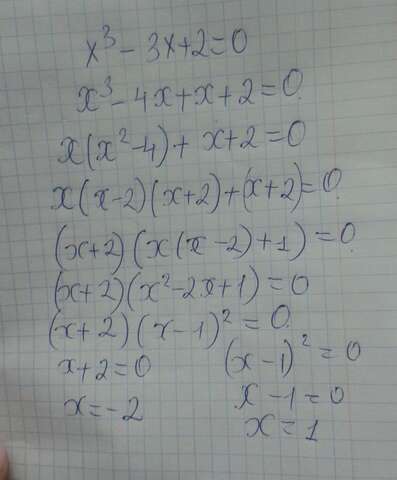 x³ - 3x + 2 = 0
x³ - 4x + x + 2 = 0
x(x² - 4) + x + 2 = 0
x(x - 2)(x + 2) + (x + 2) = 0
(x + 2)(x(x - 2) + 1) = 0
(x + 2)(x² - 2x + 1) = 0
(x + 2)(x - 1)² = 0
x + 2 = 0 (x - 1)² = 0
x = -2 x - 1 = 0
x = 1